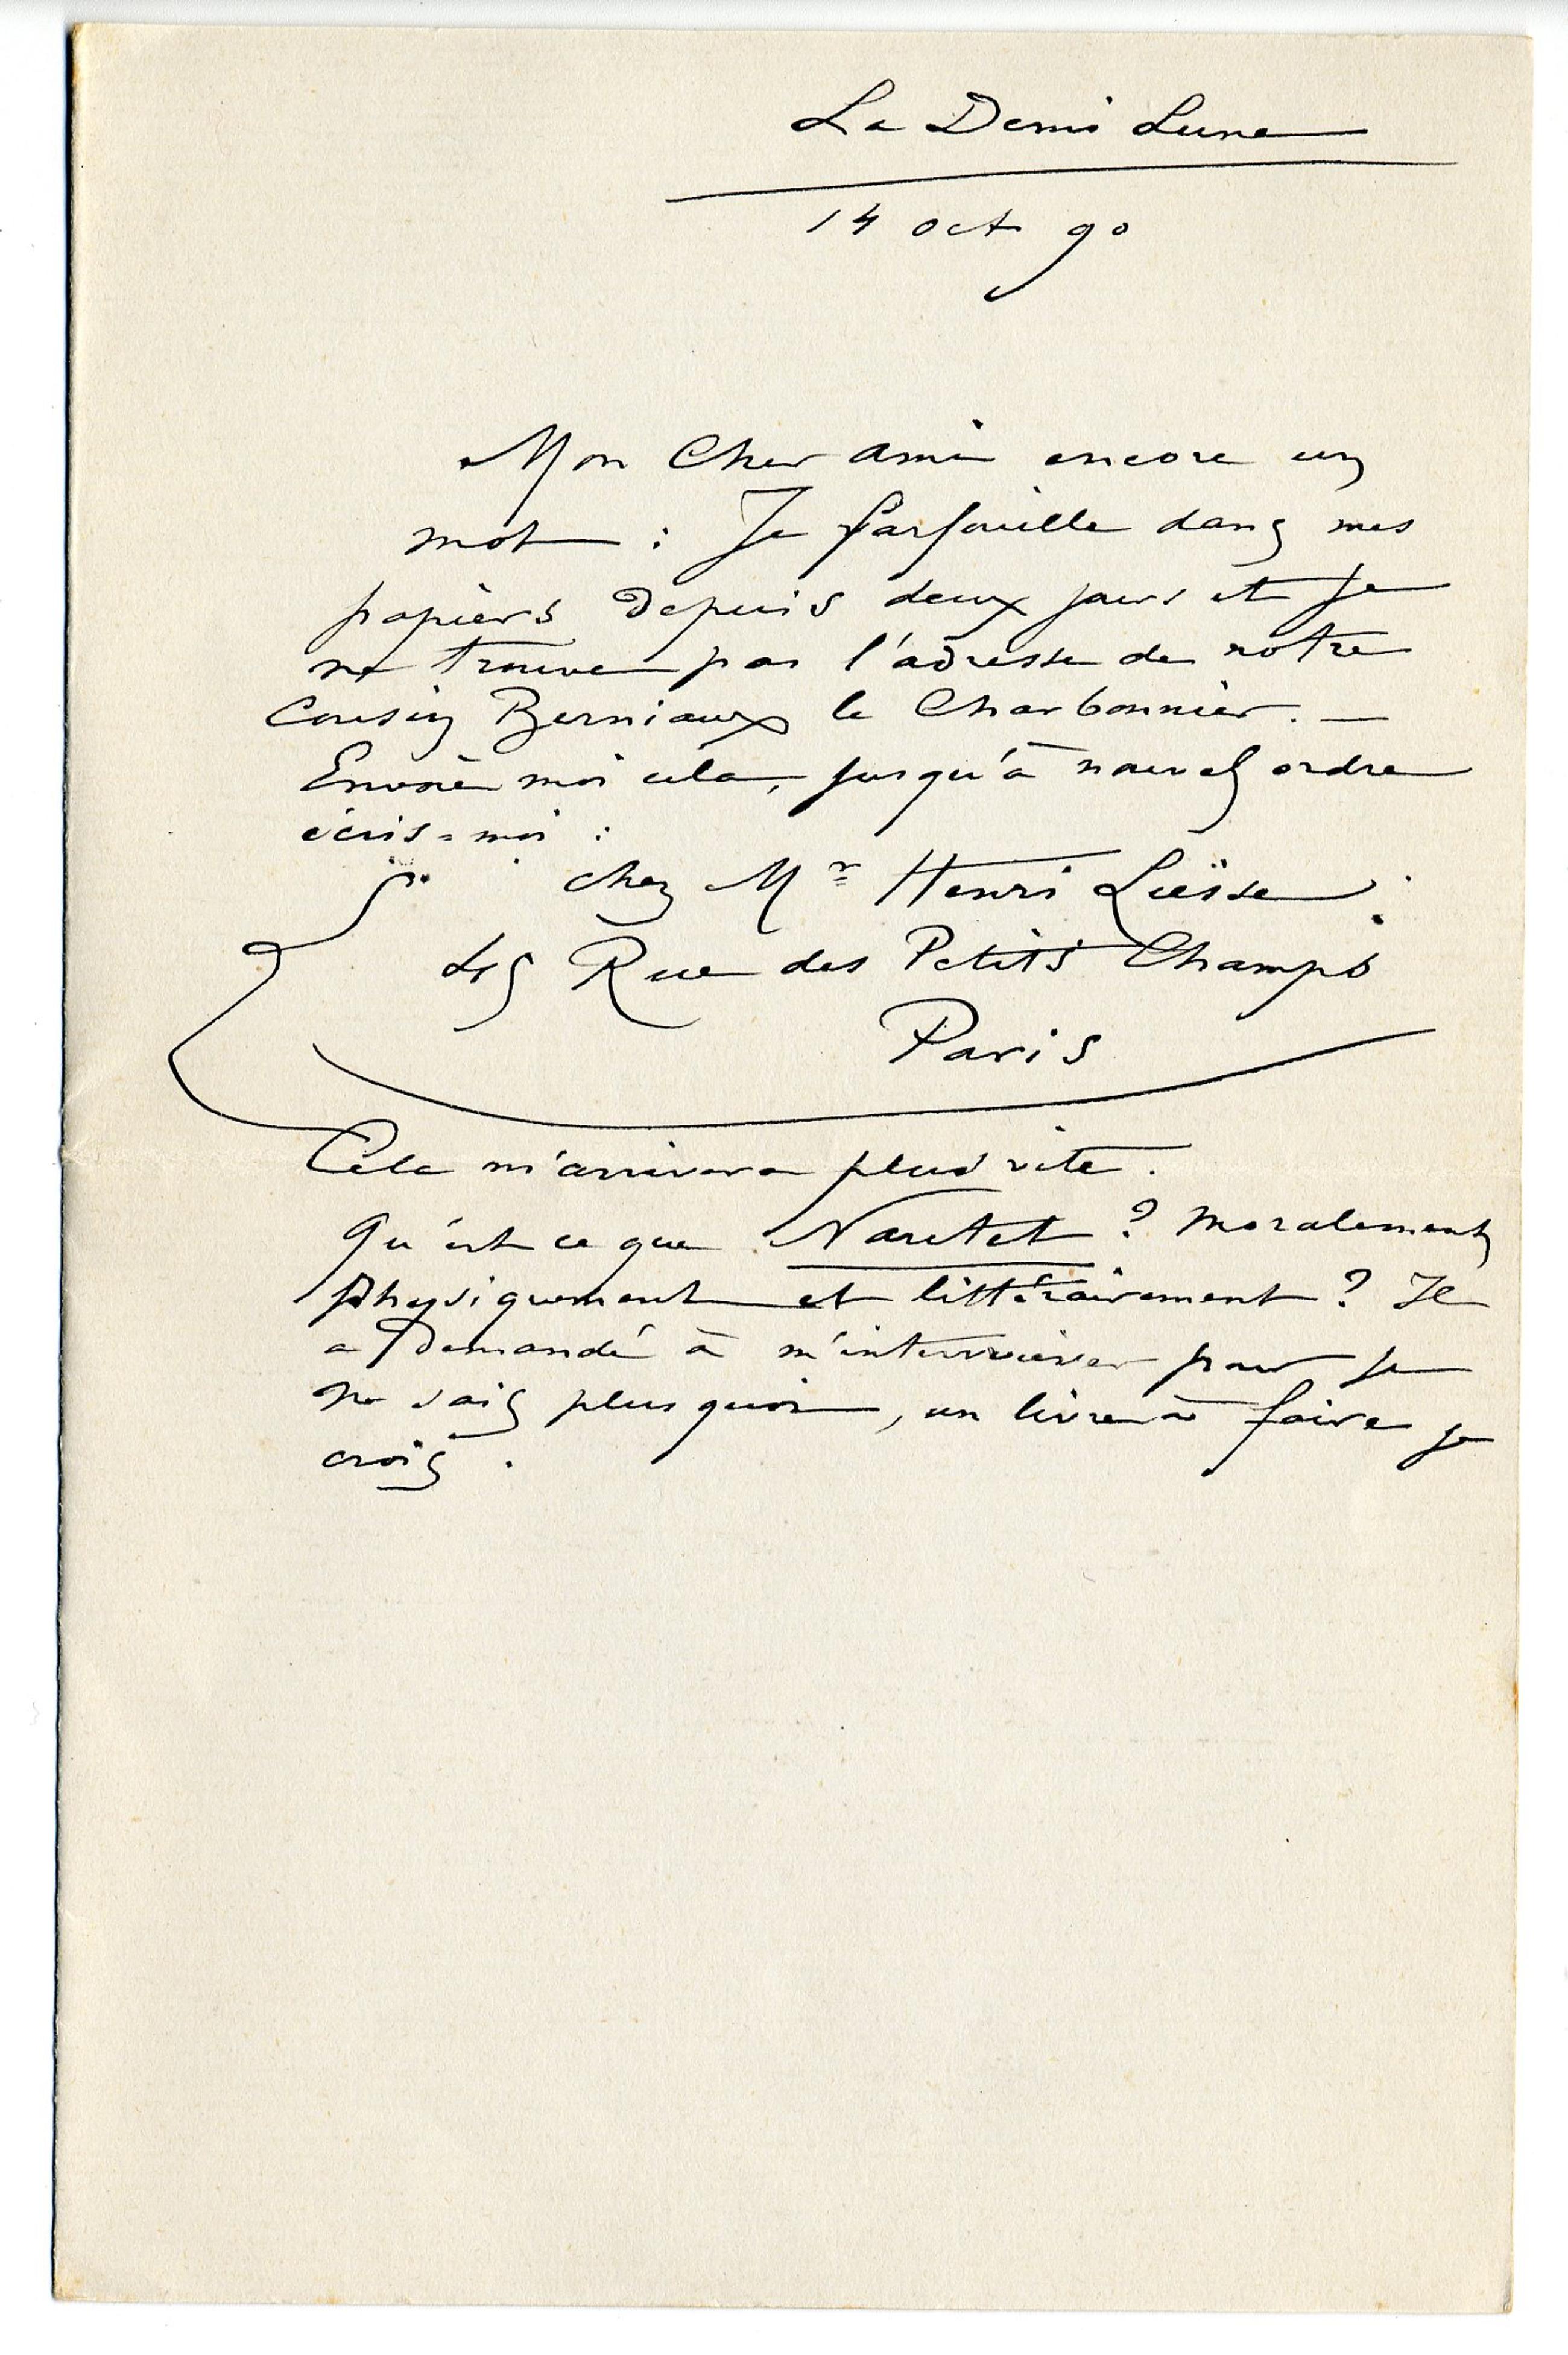 La Demi Lune
14 oct 90
Mon Cher ami encore un
mot : Je farfouille dans mes
papiers depuis deux jours et je
ne trouve pas l'adresse de notre
Cousin Berniaux le Charbonnier. —
Envoie moi cela, jusqu'à nouvel ordre
écris=moi :
chez Mr Henri Luësse
45 Rue des Petits Champs
Paris
Cela m'arrivera plus vite.
Qu'est ce que Nautet ? Moralement
physiquement et littérairement ? Il
a demandé à m'interviewer pour je
ne sais plus quoi, un livre à faire je
crois.